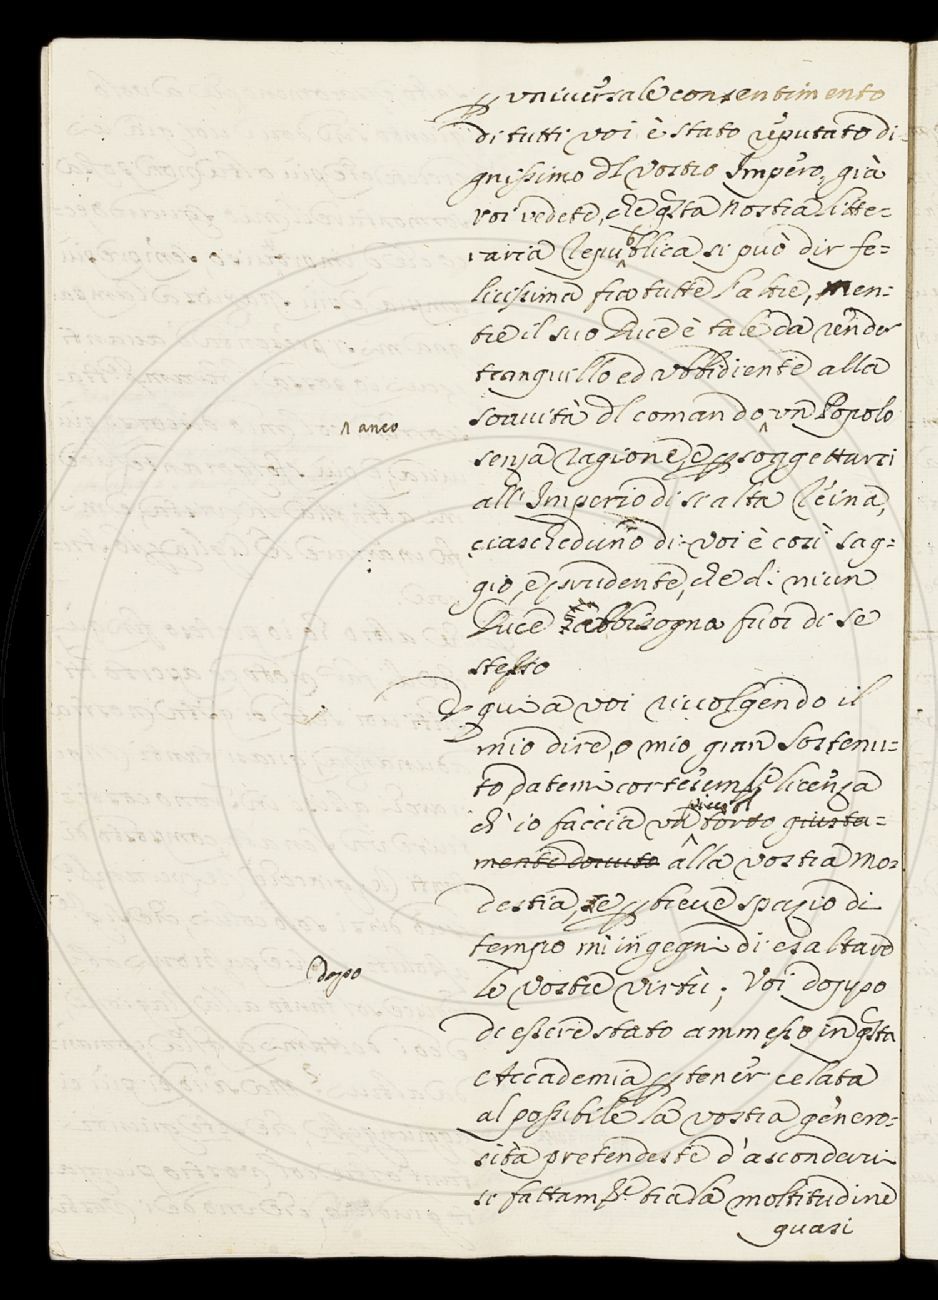 p universale consentimento
di tutti voi è stato reputato di-
gnissimo dl vostro Impero, già
voi vedete, che qsta nostra litte-
raria Republica si può dir fe-
licissima fra tutte l'altre, men-
tre il suo Duce è tale da render
tranquillo ed ubbidiente alla
soavità dl comando un Popolo
^ anco
senza ragione, e p soggettarci
all' Imperio di sì alta Reina,
ciascheduno di voi è così sag-
gio, e prudente, che di niun
Duce abbisogna fuor di se
stesso
Di qui a voi rivolgendo il
mio dire, o mio gran Sostenu-
to datemi cortesem:te licenza
ch' io faccia un piccol torto giusta-
mente dovuto alla vostra mo-
destia, se p breve spazio di
tempo mi ingegni di esaltare
le vostre virtù; Voi doppo
dopo
di essere stato ammesso in qsta
Accademia p tener celata
al possibile la vostra genero-
sità pretendeste d'ascondervi
sì fattam:te tra la moltitudine
quasi